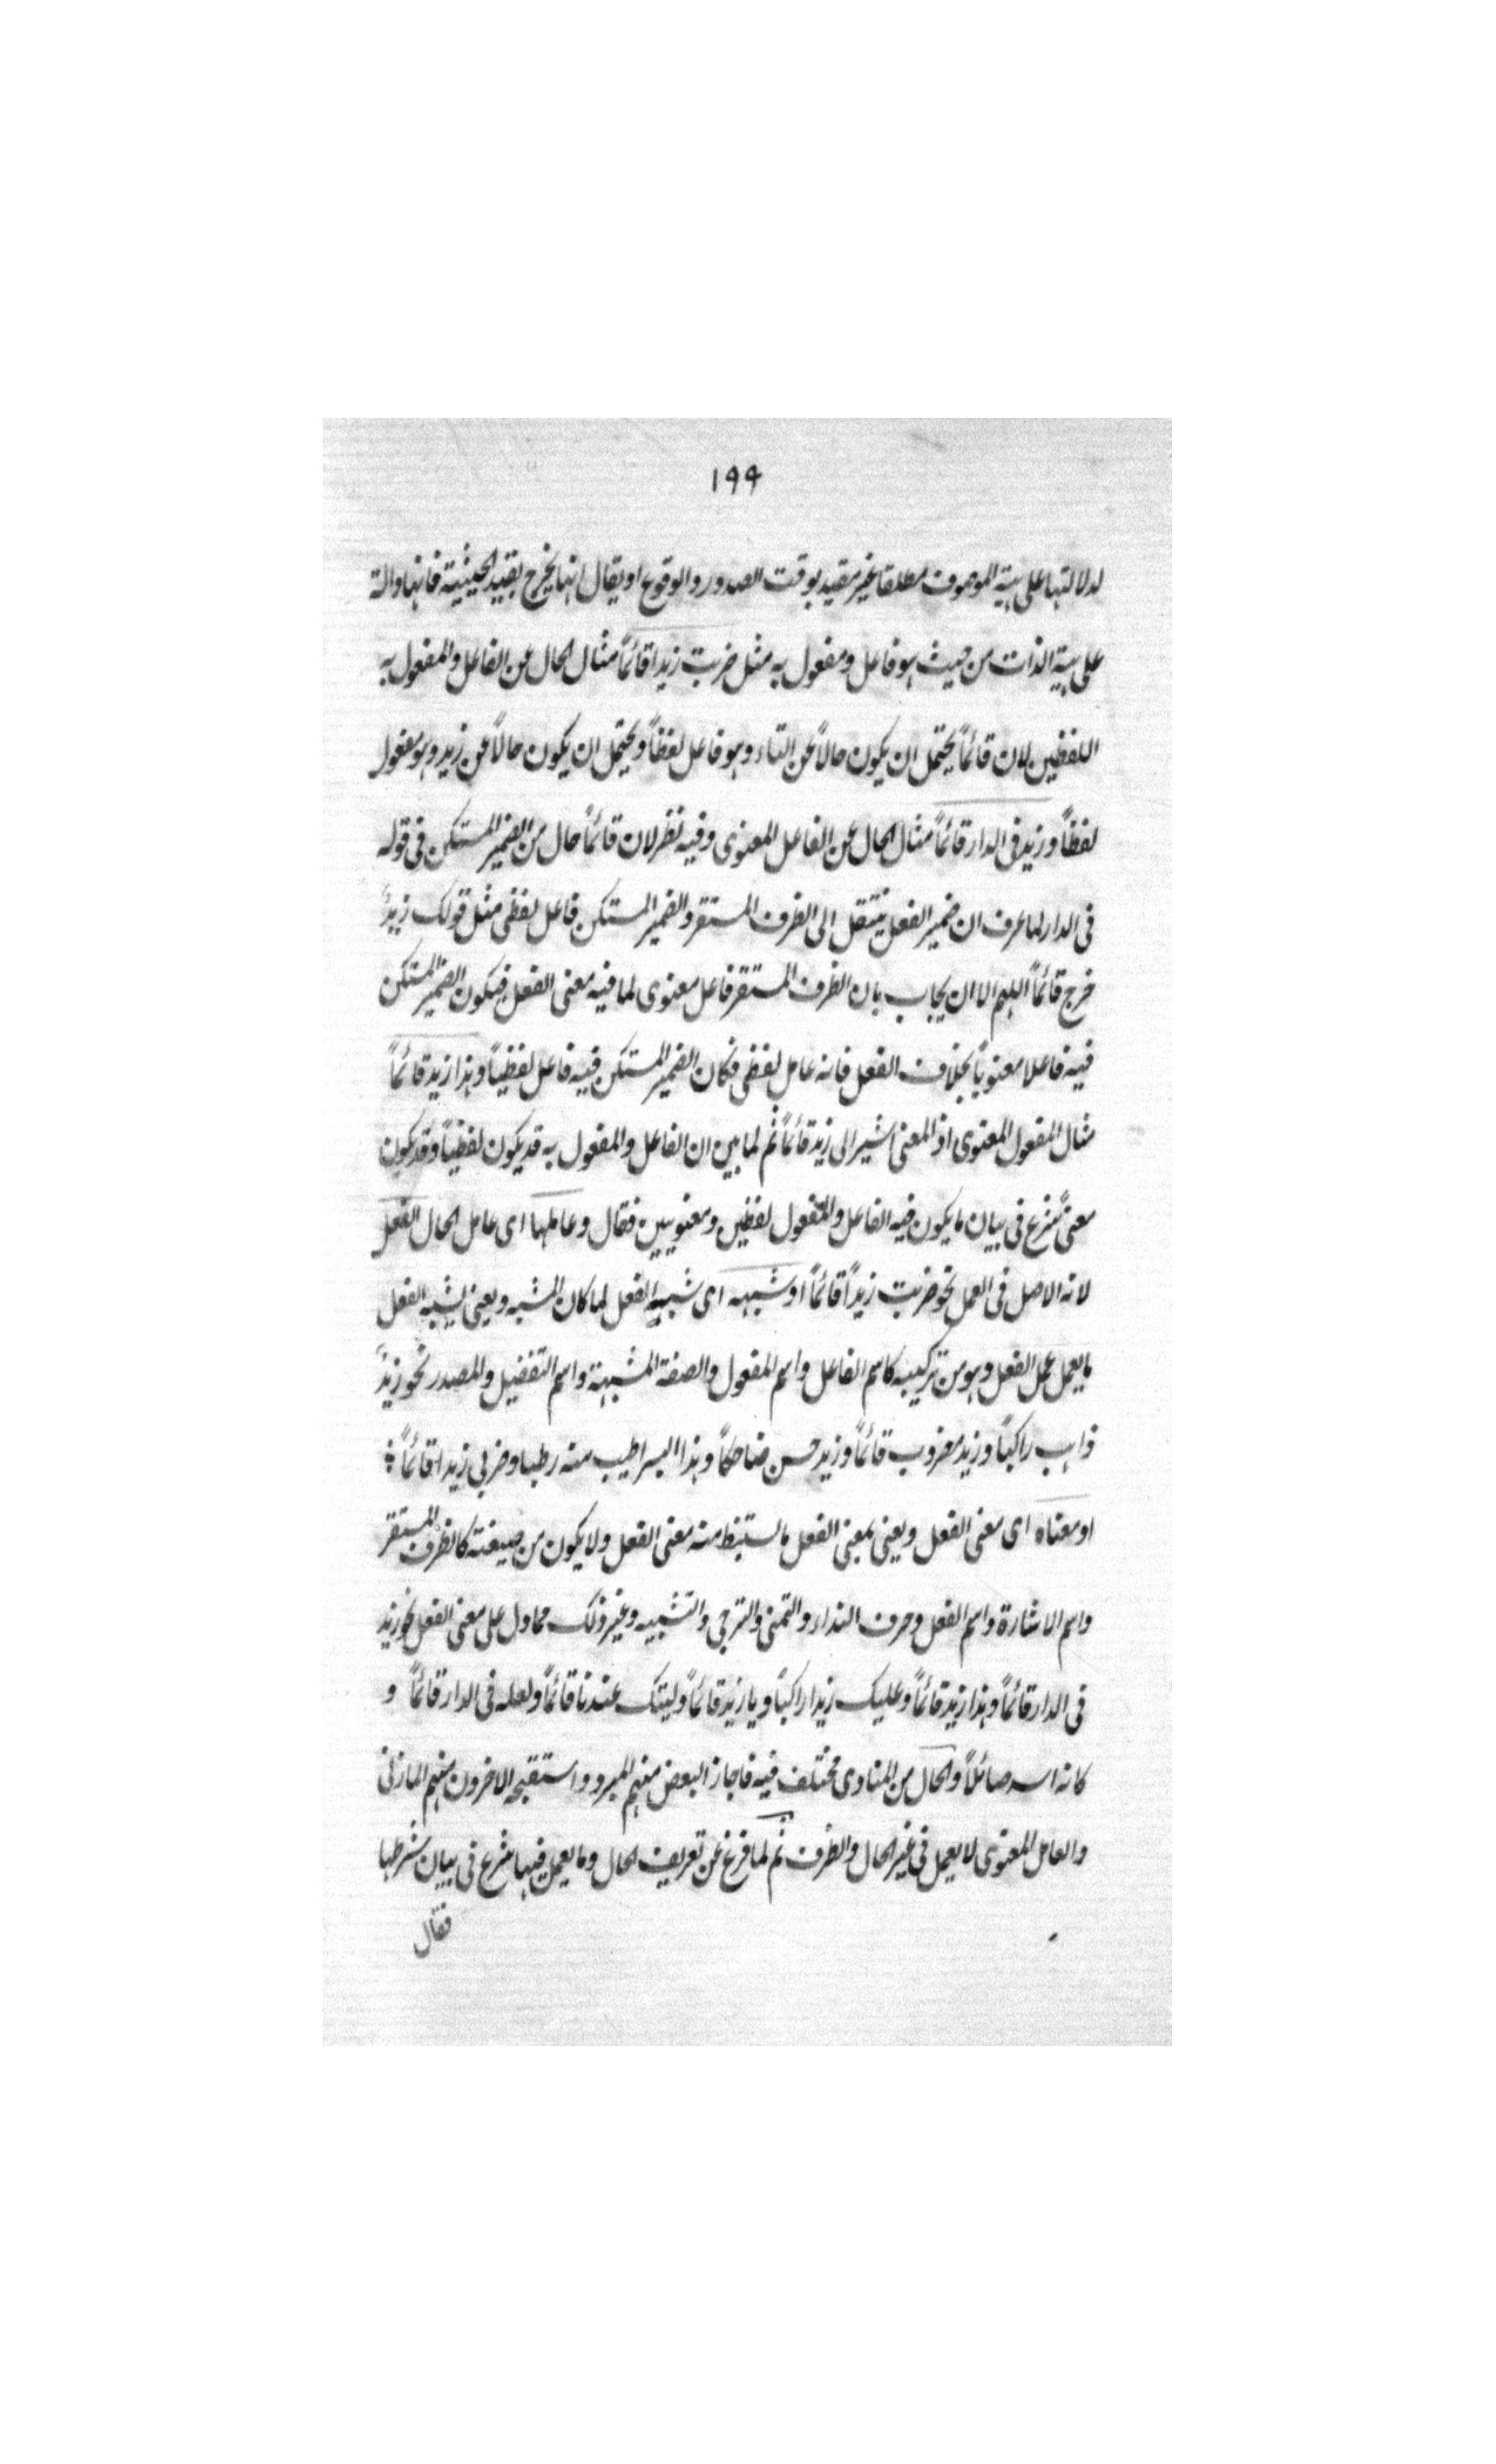 ١٩٩
لدلالتها على هيئة الموصوف مطلقا غير مقيد بوقت الصدور والوقوع او يقال انها يخرج بقيد الحيثية فانها دالة
على هيئة الذات من حيث هو فاعل ومفعول به مثل ضربت زيدا قائماً مثال الحال عن الفاعل والمفعول به
اللفظين لان قائماً يحتمل ان يكون حالاً عن التاء وهو فاعل لفظاً ويحتمل ان يكون حالاً عن زيد وهو مفعول
لفظاً وزيد فى الدار قائماً مثال الحال عن الفاعل المعنوى وفيه نظر لان قائماً حال من الضمير المستكن فى قوله
فى الدار لما عرف ان ضمير الفعل ينتقل الى الظرف المستقر والضمير المستكن فاعل لفظى مثل قولك زيدٌ
خرج قائماً اللهم الا ان يجاب بان الظرف المستقر فاعل معنوى لما فيه معنى الفعل فيكون الضمير المستكن
فيه فاعلا معنوياً بخلاف الفعل فانه عامل لفظى فكان الضمير المستكن فيه فاعل لفظياً وهذا زيد قائماً
مثال المفعول المعنوى اذ المعنى اشير الى زيد قائماً ثم لما بين ان الفاعل والمفعول به قد يكون لفظياً وقد يكون
معنىً شرع فى بيان ما يكون فيه الفاعل والمفعول لفظين ومعنويين فقال وعاملها اى عامل الحال الفعل
لانه الاصل فى العمل نحو ضربت زيداً قائماً او شبهه اى شبيه الفعل لما كان المشبه ويعنى بشبه الفعل
ما يعمل عمل الفعل وهو من تركيبه كاسم الفاعل واسم المفعول والصفة المشبهة واسم التفضيل والمصدر نحو زيدٌ
ذاهب راكباً وزيد مضروب قائماً وزيد حسن ضاحكاً وهذا البسر اطيب منه رطبا وضربى زيدا قائماً
او معناه اى معنى الفعل ويعنى بمعنى الفعل ما يستنبط منه معنى الفعل ولا يكون من صيغته كالظرف المستقر
واسم الاشارة واسم الفعل وحرف النداء والتمنى والترجى والتشبيه وغير ذلك مما دل على معنى الفعل نحو زيد
فى الدار قائماً وهذا زيد قائماً وعليك زيدا راكباً ويا زيد قائماً وليتك عندنا قائماً ولعله فى الدار قائماً و
كانه اسد صائلاً والحال من المنادى مختلف فيه فاجاز البعض منهم المبرد واستقبحه الاخرون منهم المازنى
والعامل المعنوى لا يعمل فى غير الحال والظرف ثم لما فرغ عن تعريف الحال وما يعمل فيها شرع فى بيان شرطها
فقال